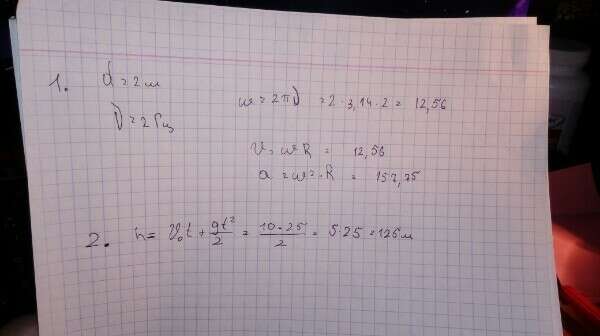 1. d = 2м
ν = 2 Гц
ω = 2πν = 2·3,14·2 = 12,56
v = ωR = 12,56
a = ω²·R = 157,75
2. h = V₀t + gt²/2 = 10·25/2 = 5·25 = 125м